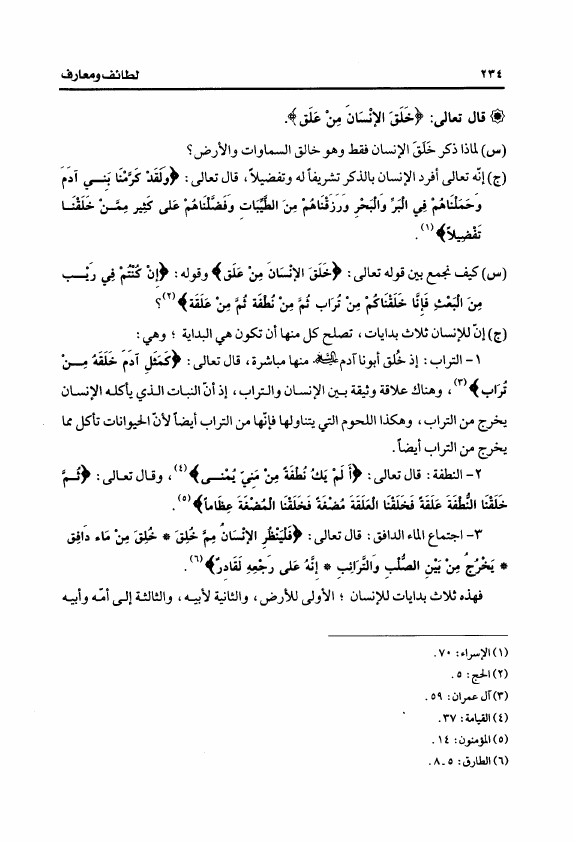 ٢٣٤ لطائف ومعارف
۞ قال تعالى: ﴿خَلَقَ الإنْسَانَ مِنْ عَلَقٍ﴾.
(س) لماذا ذكر خَلَقَ الإنسان فقط وهو خالق السماوات والأرض؟
(ج) إنّه تعالى أفرد الإنسان بالذكر تشريفاً له وتفضيلاً، قال تعالى: ﴿وَلَقَدْ كَرَّمْنَا بَنـي آدَمَ
وَحَمَلْنَاهُمْ فِي الْبَرِّ وَالْبَحْرِ وَرَزَقْنَاهُمْ مِنَ الطَّيِّبَاتِ وَفَضَّلْنَاهُمْ عَلى كَثِيرٍ مِمَّـنْ خَلَقْنَـا
تَفْضِيلاً﴾(١).
(س) كيف نجمع بين قوله تعالى: ﴿خَلَقَ الإنْسَانَ مِنْ عَلَقٍ﴾ وقوله: ﴿إِنْ كُنْتُمْ فِي رَيْـبٍ
مِنَ الْبَعْثِ فَإِنَّا خَلَقْنَاكُمْ مِنْ تُرَابٍ ثُمَّ مِنْ نُطْفَةٍ ثُمَّ مِنْ عَلَقَةٍ﴾(٢)؟
(ج) إنّ للإنسان ثلاث بدايات، تصلح كل منها أن تكون هي البداية ؛ وهي:
١- التراب: إذ خُلق أبونا آدم منها مباشرة، قال تعالى: ﴿كَمَثَلِ آدَمَ خَلَقَهُ مِـنْ
تُرَابٍ﴾(٣)، وهناك علاقة وثيقة بـين الإنسـان والـتراب، إذ أنّ النبـات الـذي يأكلـه الإنسـان
يخرج من التراب، وهكذا اللحوم التي يتناولها فإنّها من التراب أيضاً لأنّ الحيوانات تأكل مما
يخرج من التراب أيضاً.
٢- النطفة: قال تعالى: ﴿أَ لَمْ يَكُ نُطْفَةً مِنْ مَنِيٍّ يُمْنـى﴾(٤)، وقـال تعـالى: ﴿ثُـمَّ
خَلَقْنَا النُّطْفَةَ عَلَقَةً فَخَلَقْنَا الْعَلَقَةَ مُضْغَةً فَخَلَقْنَا الْمُضْغَةَ عِظَاماً﴾(٥).
٣- اجتماع الماء الدافق: قال تعالى: ﴿فَلْيَنْظُرِ الإنْسَانُ مِمَّ خُلِقَ * خُلِقَ مِنْ مَاءٍ دَافِقٍ
* يَخْرُجُ مِنْ بَيْنِ الصُّلْبِ وَالتَّرَائِبِ * إِنَّهُ عَلى رَجْعِهِ لَقَادِرٌ﴾(٦).
فهذه ثلاث بدايات للإنسان ؛ الأولى للأرض، والثانية لأبيـه، والثالثـة إلـى أمّـه وأبيـه
(١) الإسراء: ٧٠.
(٢) الحج: ٥.
(٣) آل عمران: ٥٩.
(٤) القيامة: ٣٧.
(٥) المؤمنون: ١٤.
(٦) الطارق: ٥ـ٨.